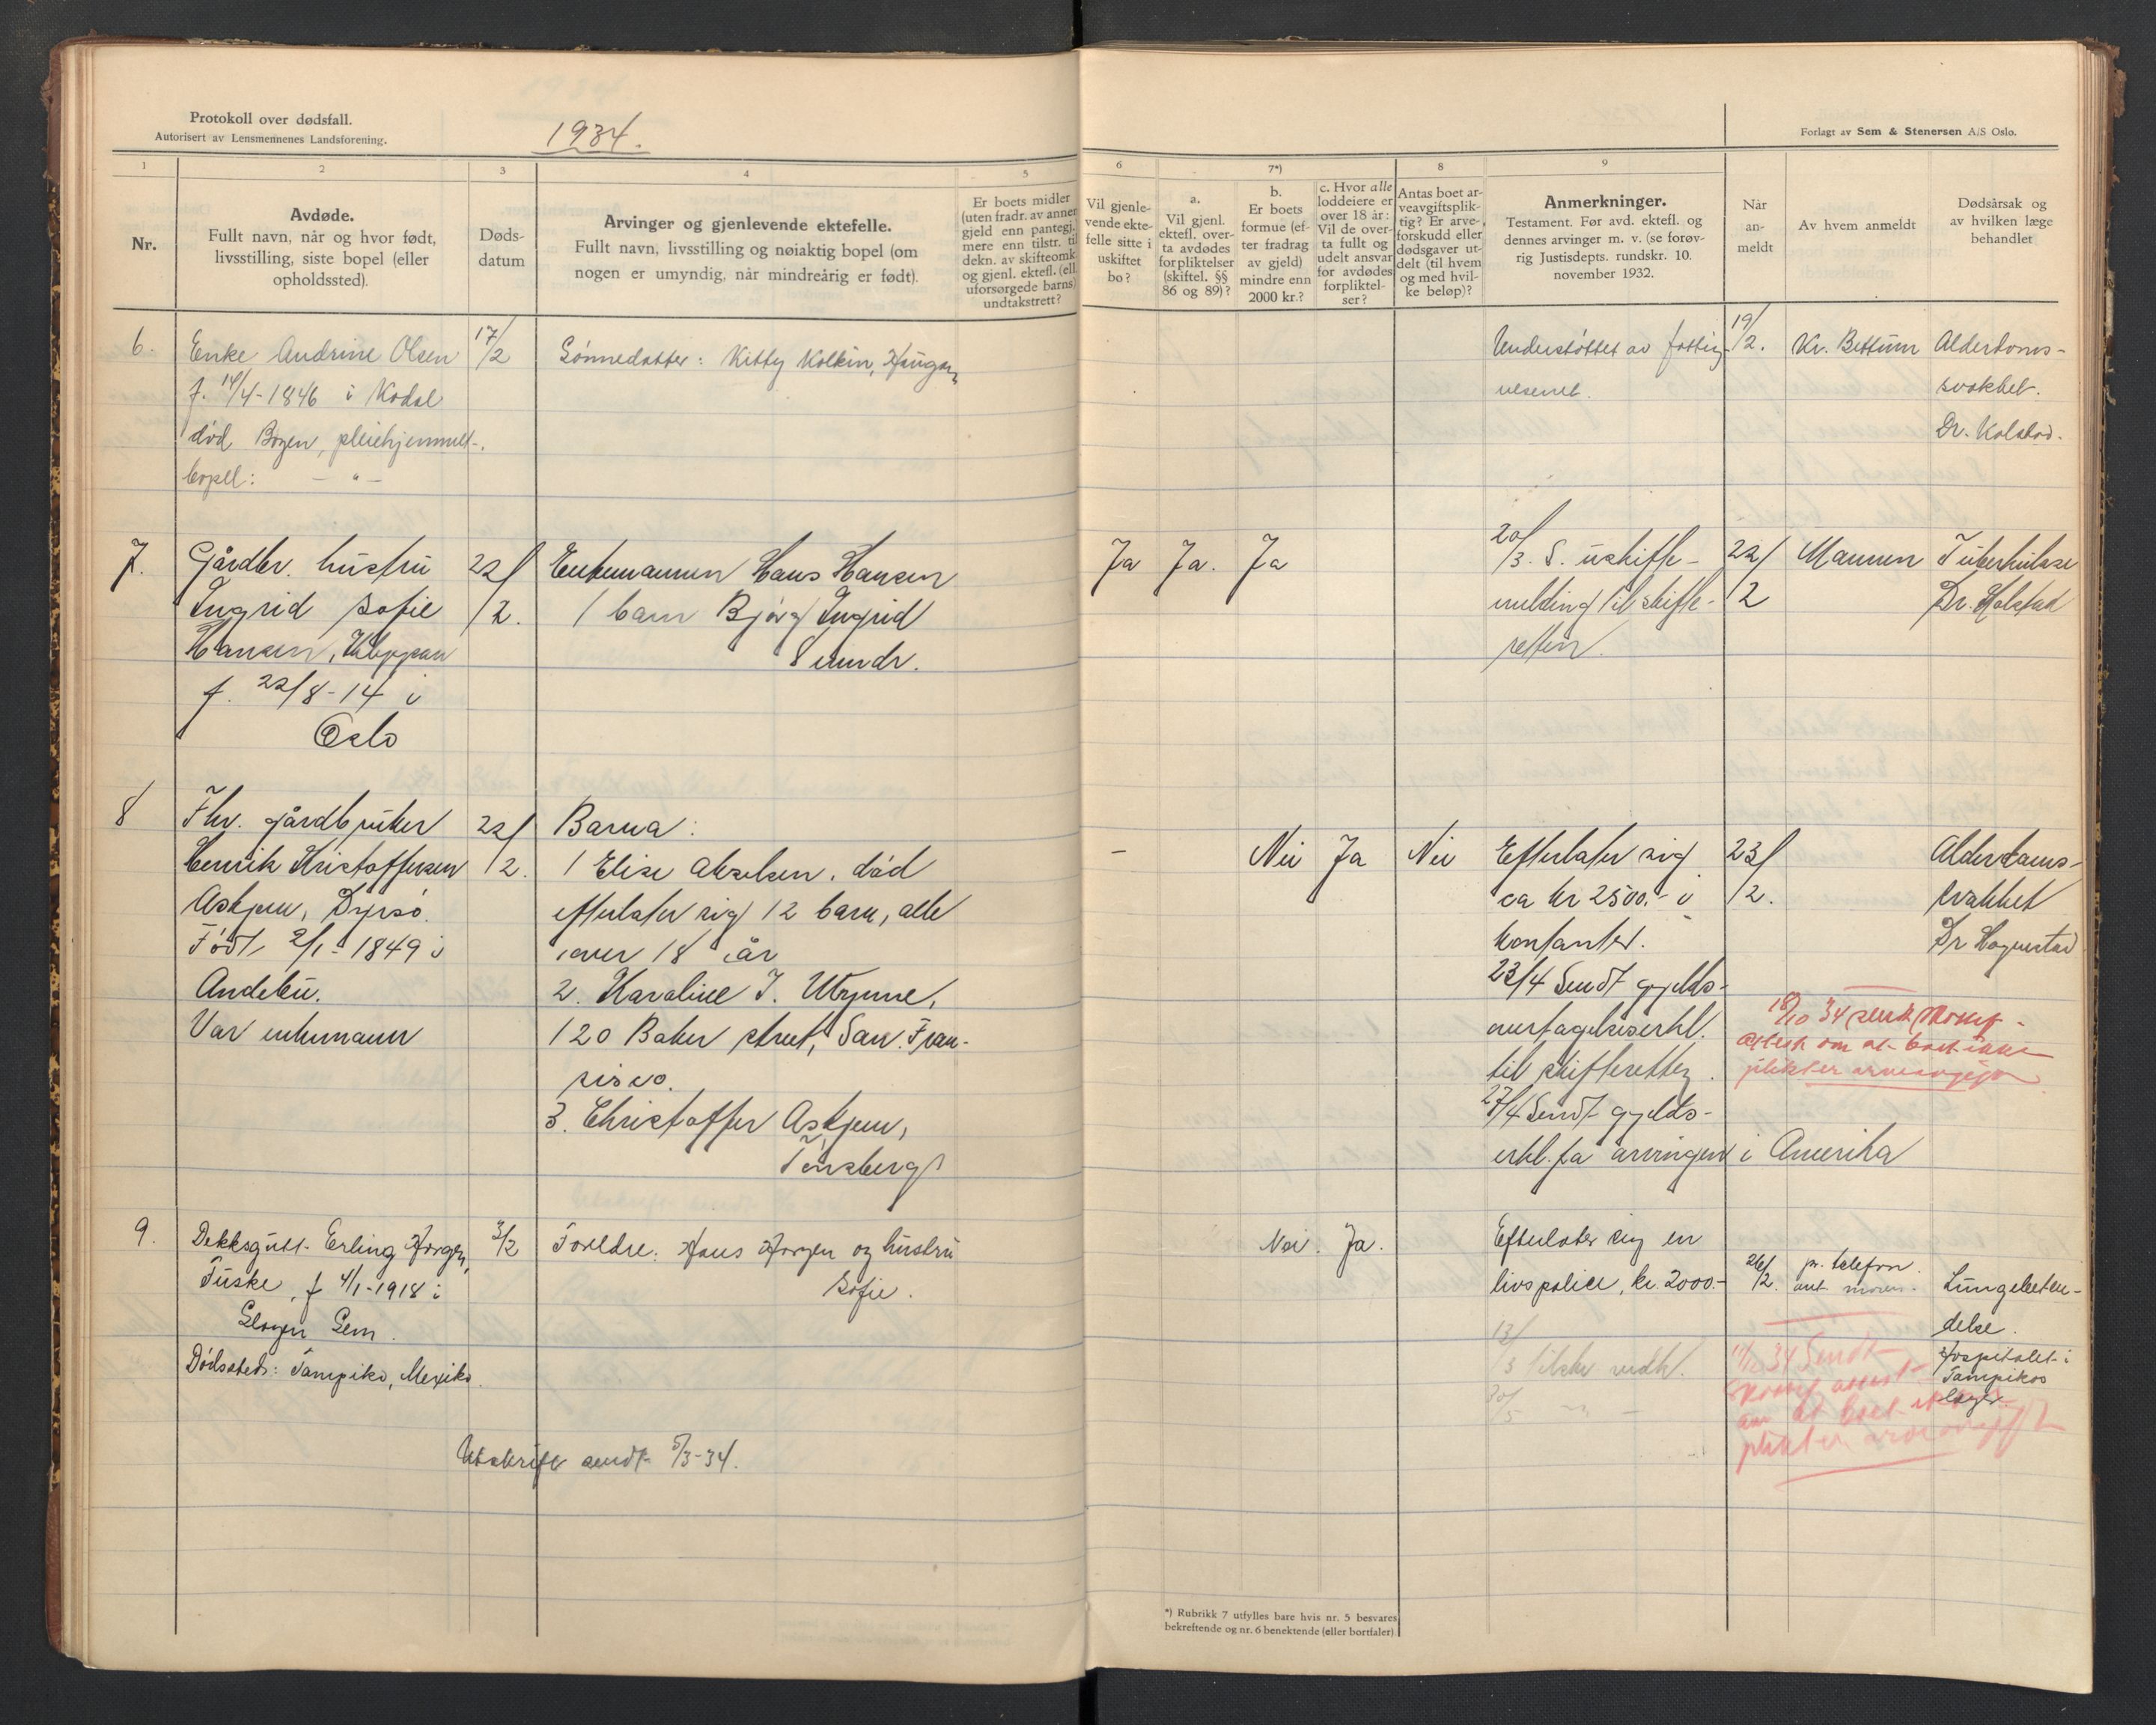 Protokoll over dødsfall.
Autorisert av Lensmennenes Landsforening.
1934.
Forlagt av Sem & Stenersen A/S Oslo.
1
2
3
4
5
6
7*)
8
9
Nr.
Avdøde.
Fullt navn, når og hvor født,
livsstilling, siste bopel (eller
opholdssted).
Døds-
datum
Arvinger og gjenlevende ektefelle.
Fullt navn, livsstilling og nøiaktig bopel (om
nogen er umyndig, når mindreårig er født).
Er boets midler
(uten fradr. av annen
gjeld enn pantegj.)
mere enn tilstr. til
dekn. av skifteomk.
og gjenl. ektefl. (ell.
uforsørgede barns)
undtakstrett?
Vil gjenle-
vende ekte-
felle sitte i
uskiftet
bo?
a.
Vil gjenl.
ektefl. over-
ta avdødes
forpliktelser
(skiftel. §§
86 og 89)?
b.
Er boets
formue (ef-
ter fradrag
av gjeld)
mindre enn
2000 kr.?
c. Hvor alle
loddeiere er
over 18 år:
Vil de over-
ta fullt og
udelt ansvar
for avdødes
forpliktel-
ser?
Antas boet ar-
veavgiftsplik-
tig? Er arve-
forskudd eller
dødsgaver ut-
delt (til hvem
og med hvil-
ke beløp)?
Anmerkninger.
Testament. Før avd. ektefl. og
dennes arvinger m. v. (se forøv-
rig Justisdepts. rundskr. 10.
november 1932.
Når
an-
meldt
Av hvem anmeldt
Dødsårsak og
av hvilken læge
behandlet
6.
Enke Andrine Olsen
f. 14/4-1846 i Kodal
død Bøgen, pleiehjemmet.
bopel: - " -
17/2
Sønnedatter: Kitty Kolkin, Haugan
Understøttet av fattig-
vesenet.
19/2.
Kr. Bettum
Alderdoms-
svakhet.
Dr. Kolstad.
7.
Gårdbr. hustru
Ingrid Sofie
Hansen, Kleppan
f. 22/8-14 i
Oslo
22/2.
Enkemannen Hans Hansen
1 barn Bjørg Ingrid
8 mndr.
Ja Ja. Ja
20/3. S. uskifte-
melding til skifte-
retten.
22/2
Mannen
Tuberkulose
Dr. Kolstad
8
Fhv. gårdbruker
Henrik Kristoffersen
Askjem, Dyrsø.
Født 2/1-1849 i
Andebu.
Var enkemann
22/2.
Barna:
1 Elise Akselsen, død
efterlater sig 12 barn, alle
over 18 år
2. Karaline J. Wynne,
120 Baker street, San. Fran-
sisco.
3. Christoffer Askjem,
Tønsberg
- Nei Ja Nei
Efterlater sig
ca kr 2500.- i
kontanter.
23/4 Sendt gjelds-
overtagelseserkl.
til skifteretten.
27/4 Sendt gjelds-
erkl. fra arvingen i Amerika
23/2.
Alderdoms-
svakhet
Dr
18/10 34 sendt
attest om at boet ikke
plikter arveavgift
9.
Dekksgutt Erling Horgen,
Tuske, f 4/1-1918 i
Slagen Sem.
Dødssted: Tampiko, Mexiko.
3/2
Foreldre: Hans Horgen og hustru
Sofie.
Nei. Ja.
Efterlater sig en
livspolice, kr. 2000.-
13/3
30/5 - " -
26/2.
pr. telefon
ant. moren.
Lungebeten-
delse.
Hospitalet i
Tampikos
læge.
34 Sendt
attest
om at boet ikke
plikter arveavgift
Utskrift sendt 5/3-34.
*) Rubrikk 7 utfylles bare hvis nr. 5 besvares
bekreftende og nr. 6 benektende (eller bortfaler).